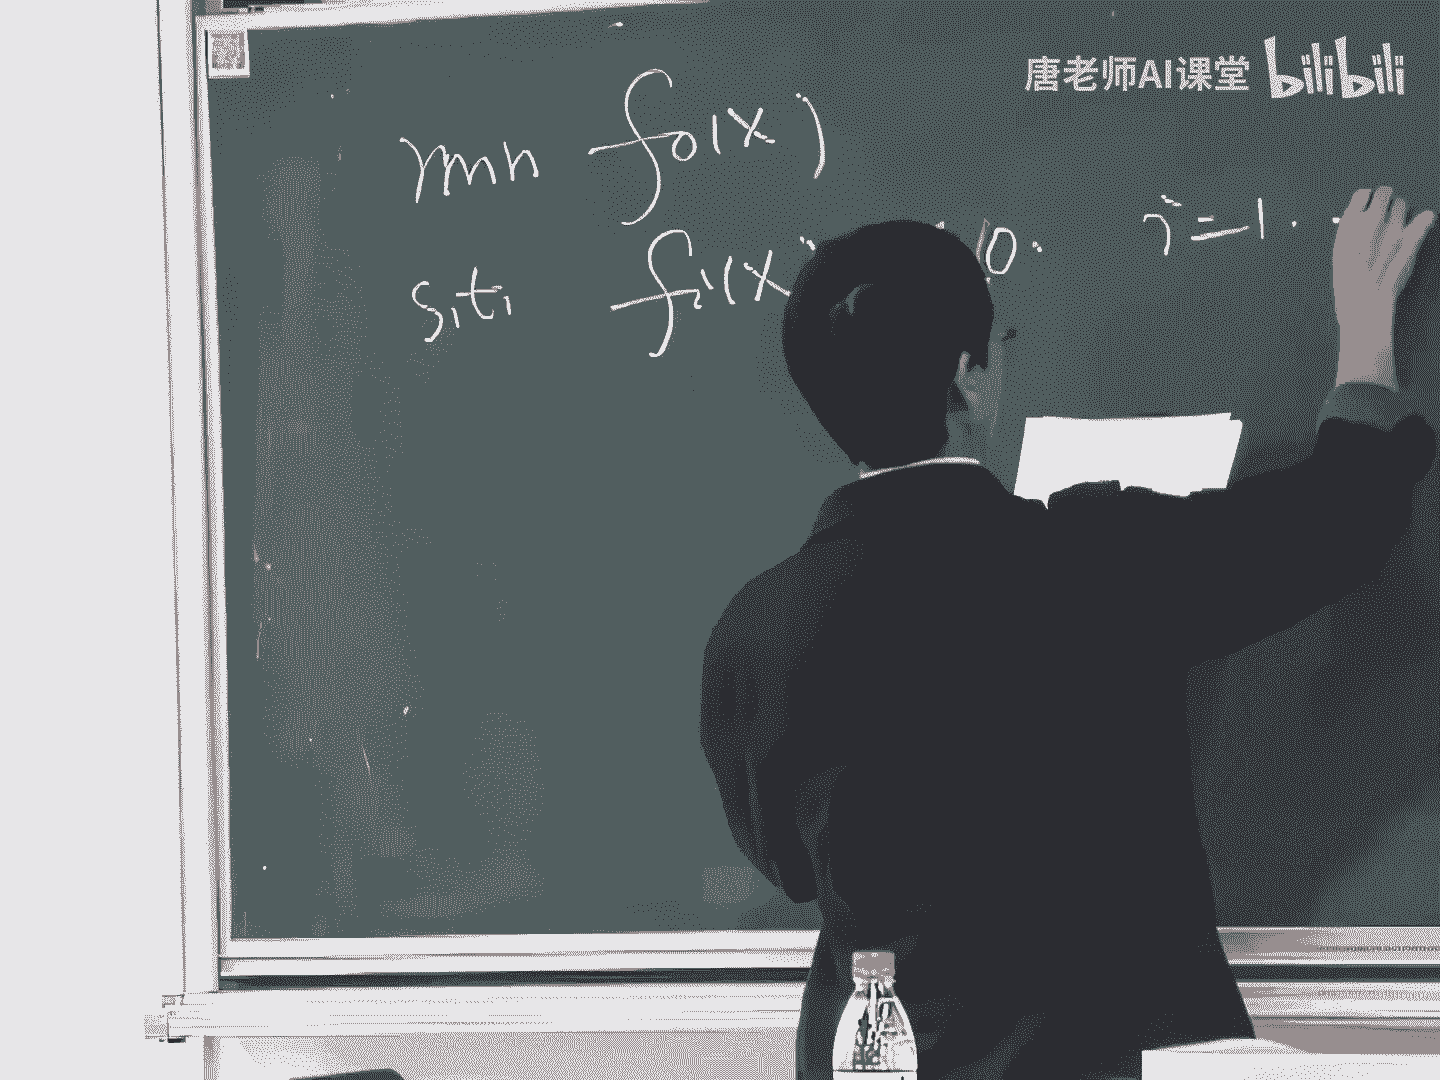 唐老师AI课堂 bilibili
min f0(x)
s.t. fi(x 0. i=1.